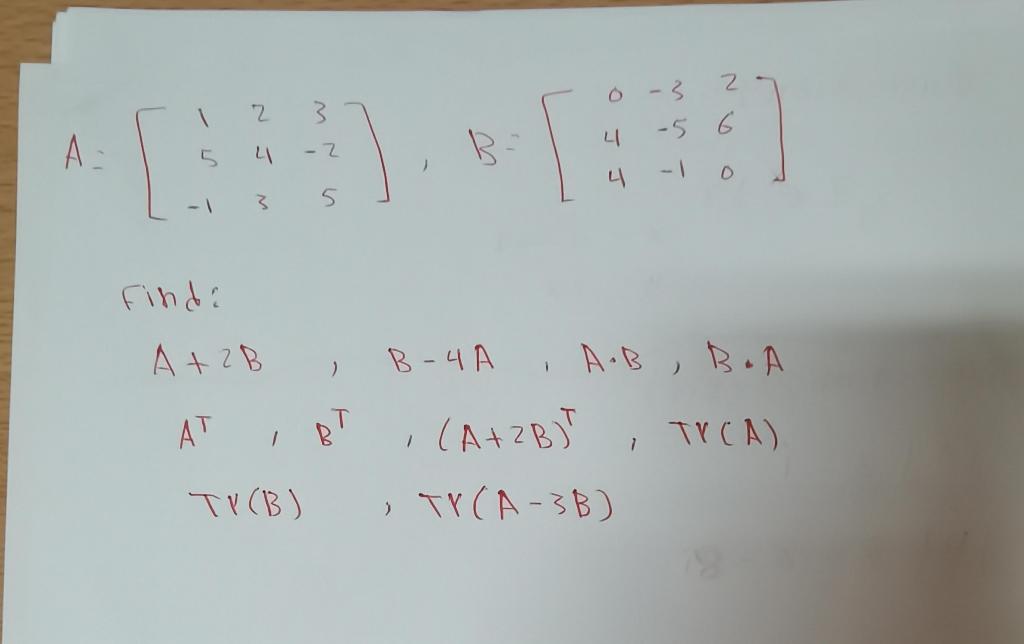 A = [ 1 2 3 ; 5 4 -2 ; -1 3 5 ] , B = [ 0 -3 2 ; 4 -5 6 ; 4 -1 0 ]
Find:
A + 2B , B - 4A , A · B , B · A
Aᵀ , Bᵀ , (A + 2B)ᵀ , Tr(A)
Tr(B) , Tr(A - 3B)